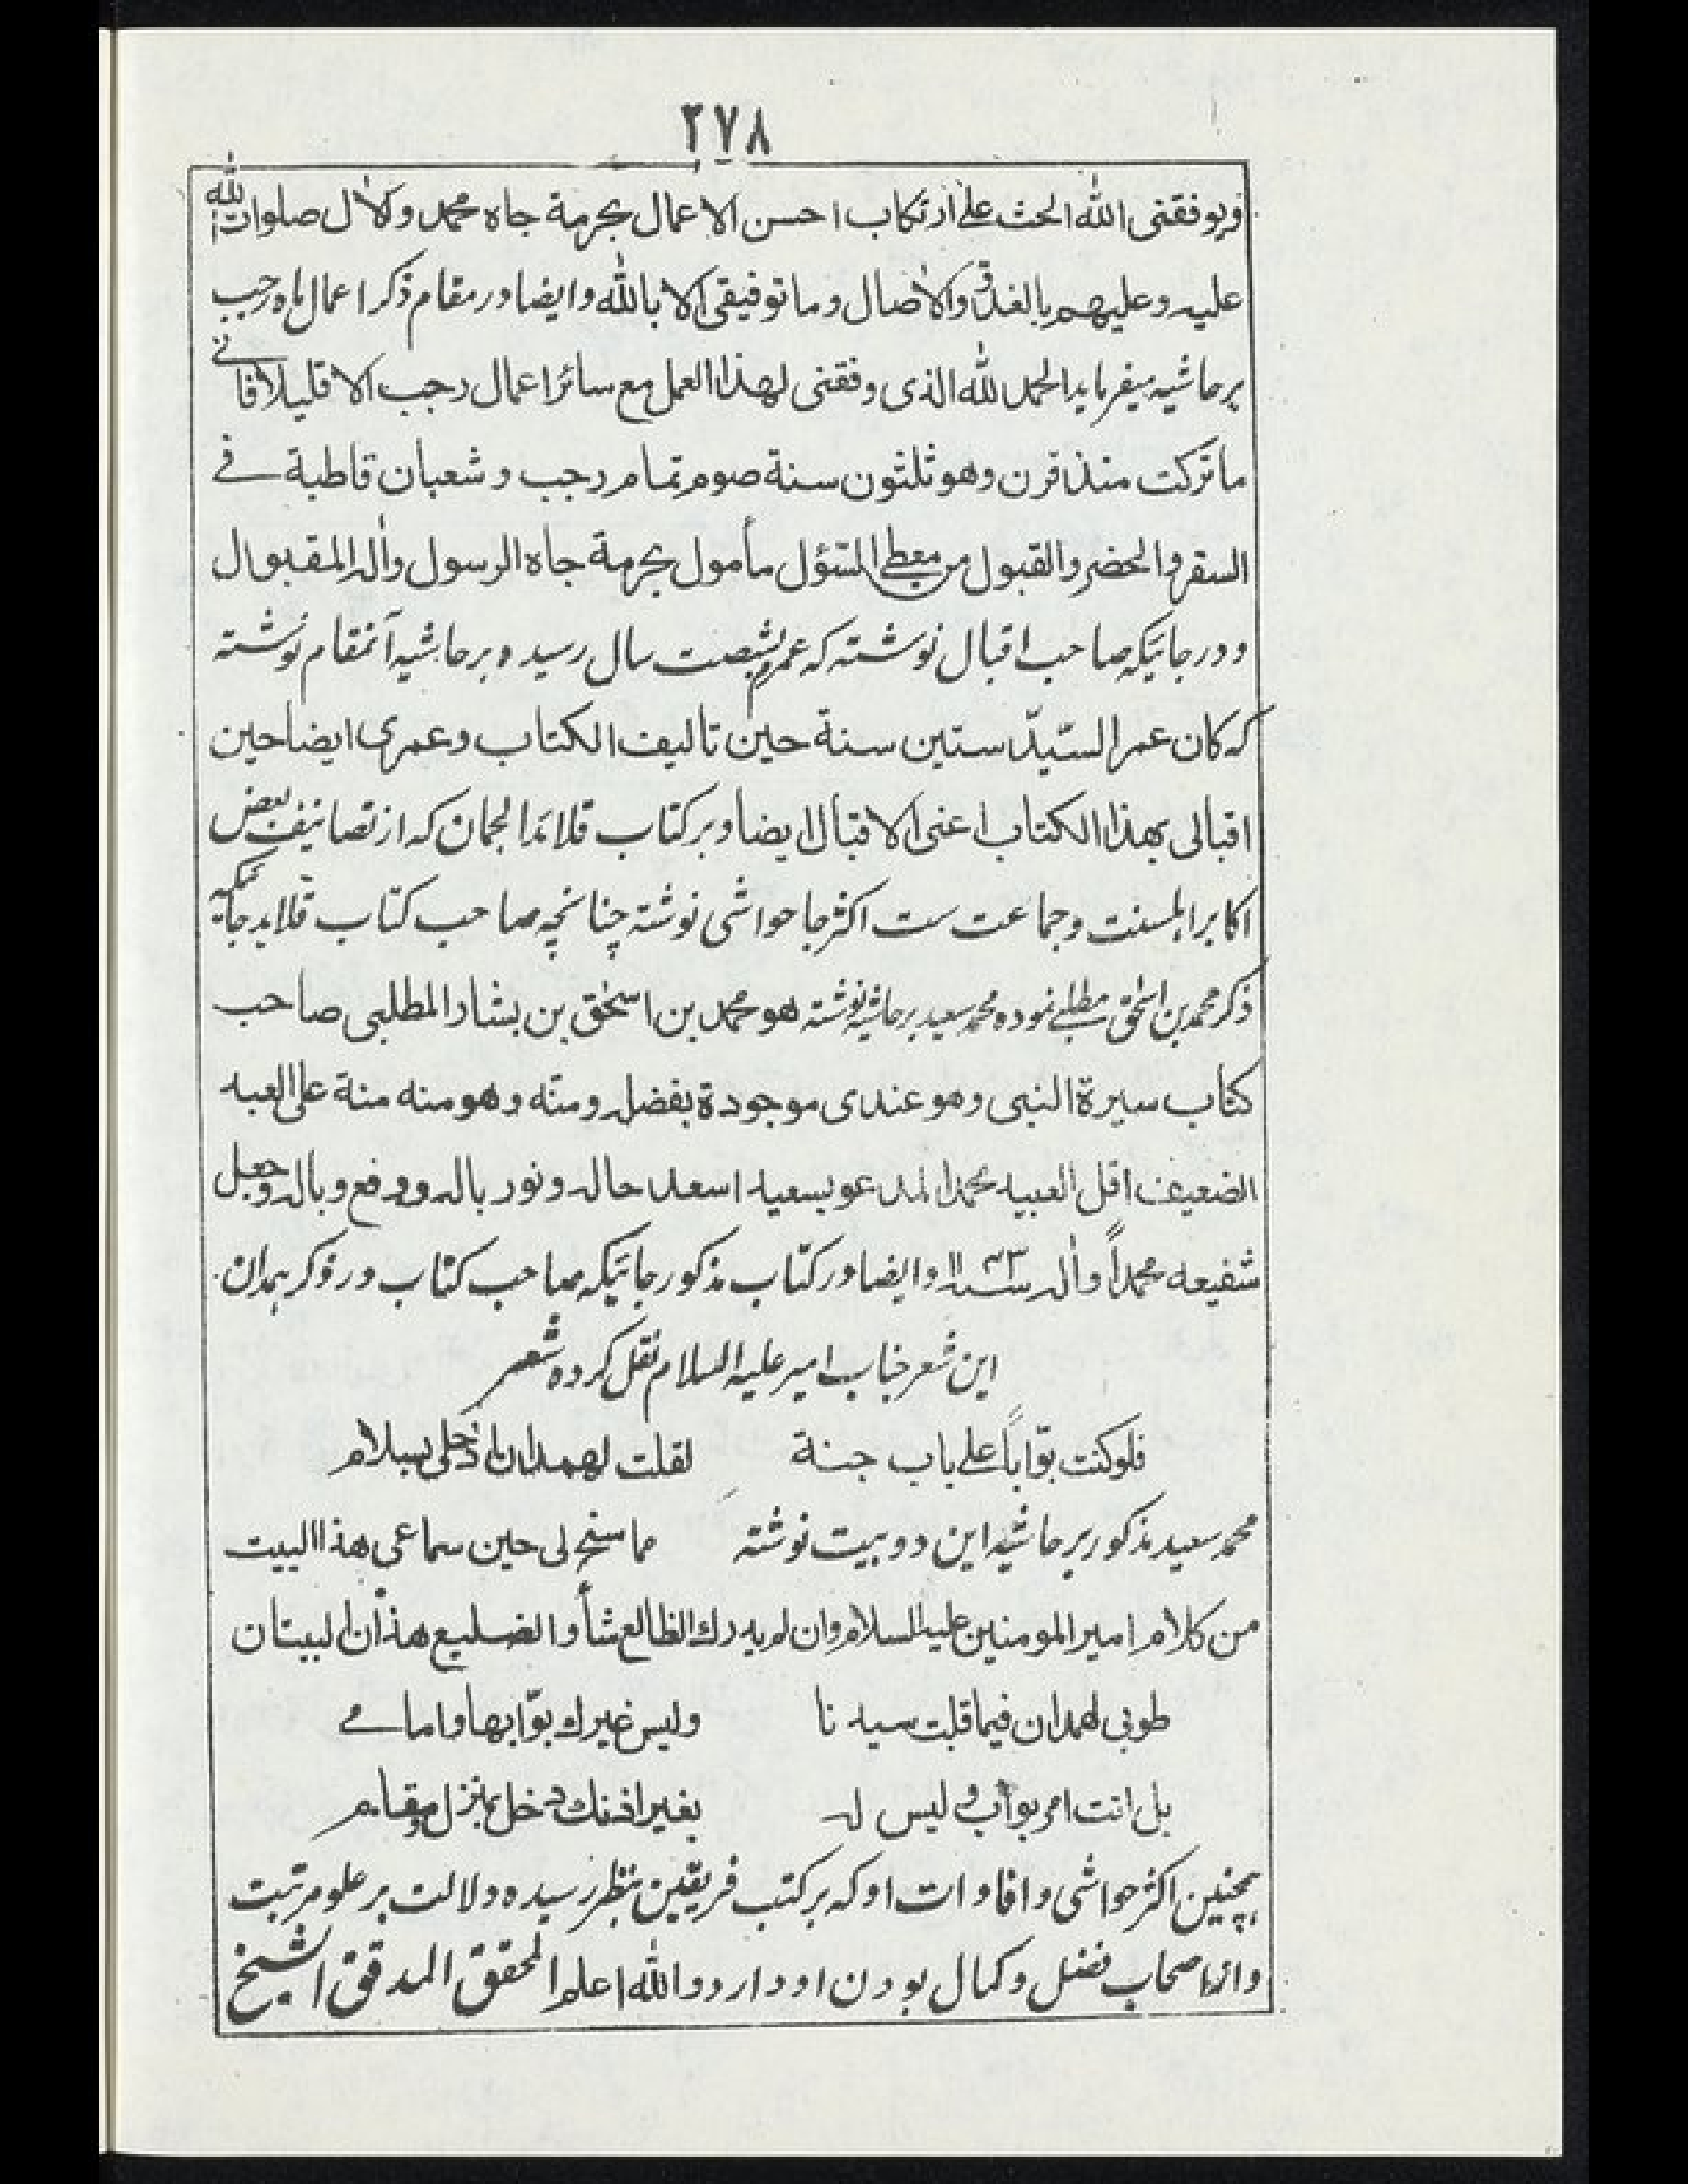 ۲۷۸
فربو فقنی الله الحث علی ارتکاب احسن الاعمال بحرمة جاه محمد والآل صلوات الله
علیه وعلیهم بالغدو والآصال وما توفیقی الا بالله وایضا در مقام ذکر اعمال ماه رجب
بر حاشیه میفرماید الحمد لله الذی وفقنی لهذا العمل مع سائر اعمال رجب الا قلیلا فانی
ما ترکت منذ قرن وهو ثلثون سنة صوم تمام رجب و شعبان قاطبة فی
السفر والحضر والقبول من معطی المسؤل مأمول بحرمة جاه الرسول وآله المقبول
و در جائیکه صاحب اقبال نوشته که عمرم بشصت سال رسیده بر حاشیه آنمقام نوشته
که کان عمر السیّد ستین سنة حین تالیف الکتاب وعمری ایضا حین
اقبالی بهذا الکتاب اعنی الاقبال ایضا و بر کتاب قلائد الجمان که از تصانیف بعض
اکابر اہلسنت وجماعت ست اکثر جا حواشی نوشته چنانچه صاحب کتاب قلاید جائیکه
ذکر محمد بن اسحٰق مطلبی نموده محمد سعید بر حاشیه نوشته هو محمد بن اسحٰق بن بشار المطلبی صاحب
کتاب سیرة النبی وهو عندی موجودة بفضله ومنّه وهو منه منة علی العبد
الضعیف اقل العبید محمد المدعو بسعید اسعد حاله ونور باله ورفع وباله وجعل
شفیعه محمداً وآله وایضا در کتاب مذکور جائیکه صاحب کتاب در ذکر ہمدان
این شعر جناب امیر علیه السلام نقل کرده شعر
فلو کنت بوّاباً علی باب جنة لقلت لهمدان ادخلی بسلام
محمد سعید مذکور بر حاشیه این دو بیت نوشته مما سنح لی حین سماعی هذا البیت
من کلام امیر المومنین علیه السلام وان لم یدرك الظالع شأو الضلیع هذان البیتان
طوبی لهمدان فیما قلت سیدنا ولیس غیرك بوّابها وامامی
بل انت امر بوّاب ولیس له بغیر اذنك دخل بمنزل ومقام
ہمچنین اکثر حواشی و افادات او که بر کتب فریقین بنظر رسیده دلالت بر علو مرتبت
و از اصحاب فضل و کمال بودن او دارد والله اعلم المحقق المدقق الشیخ